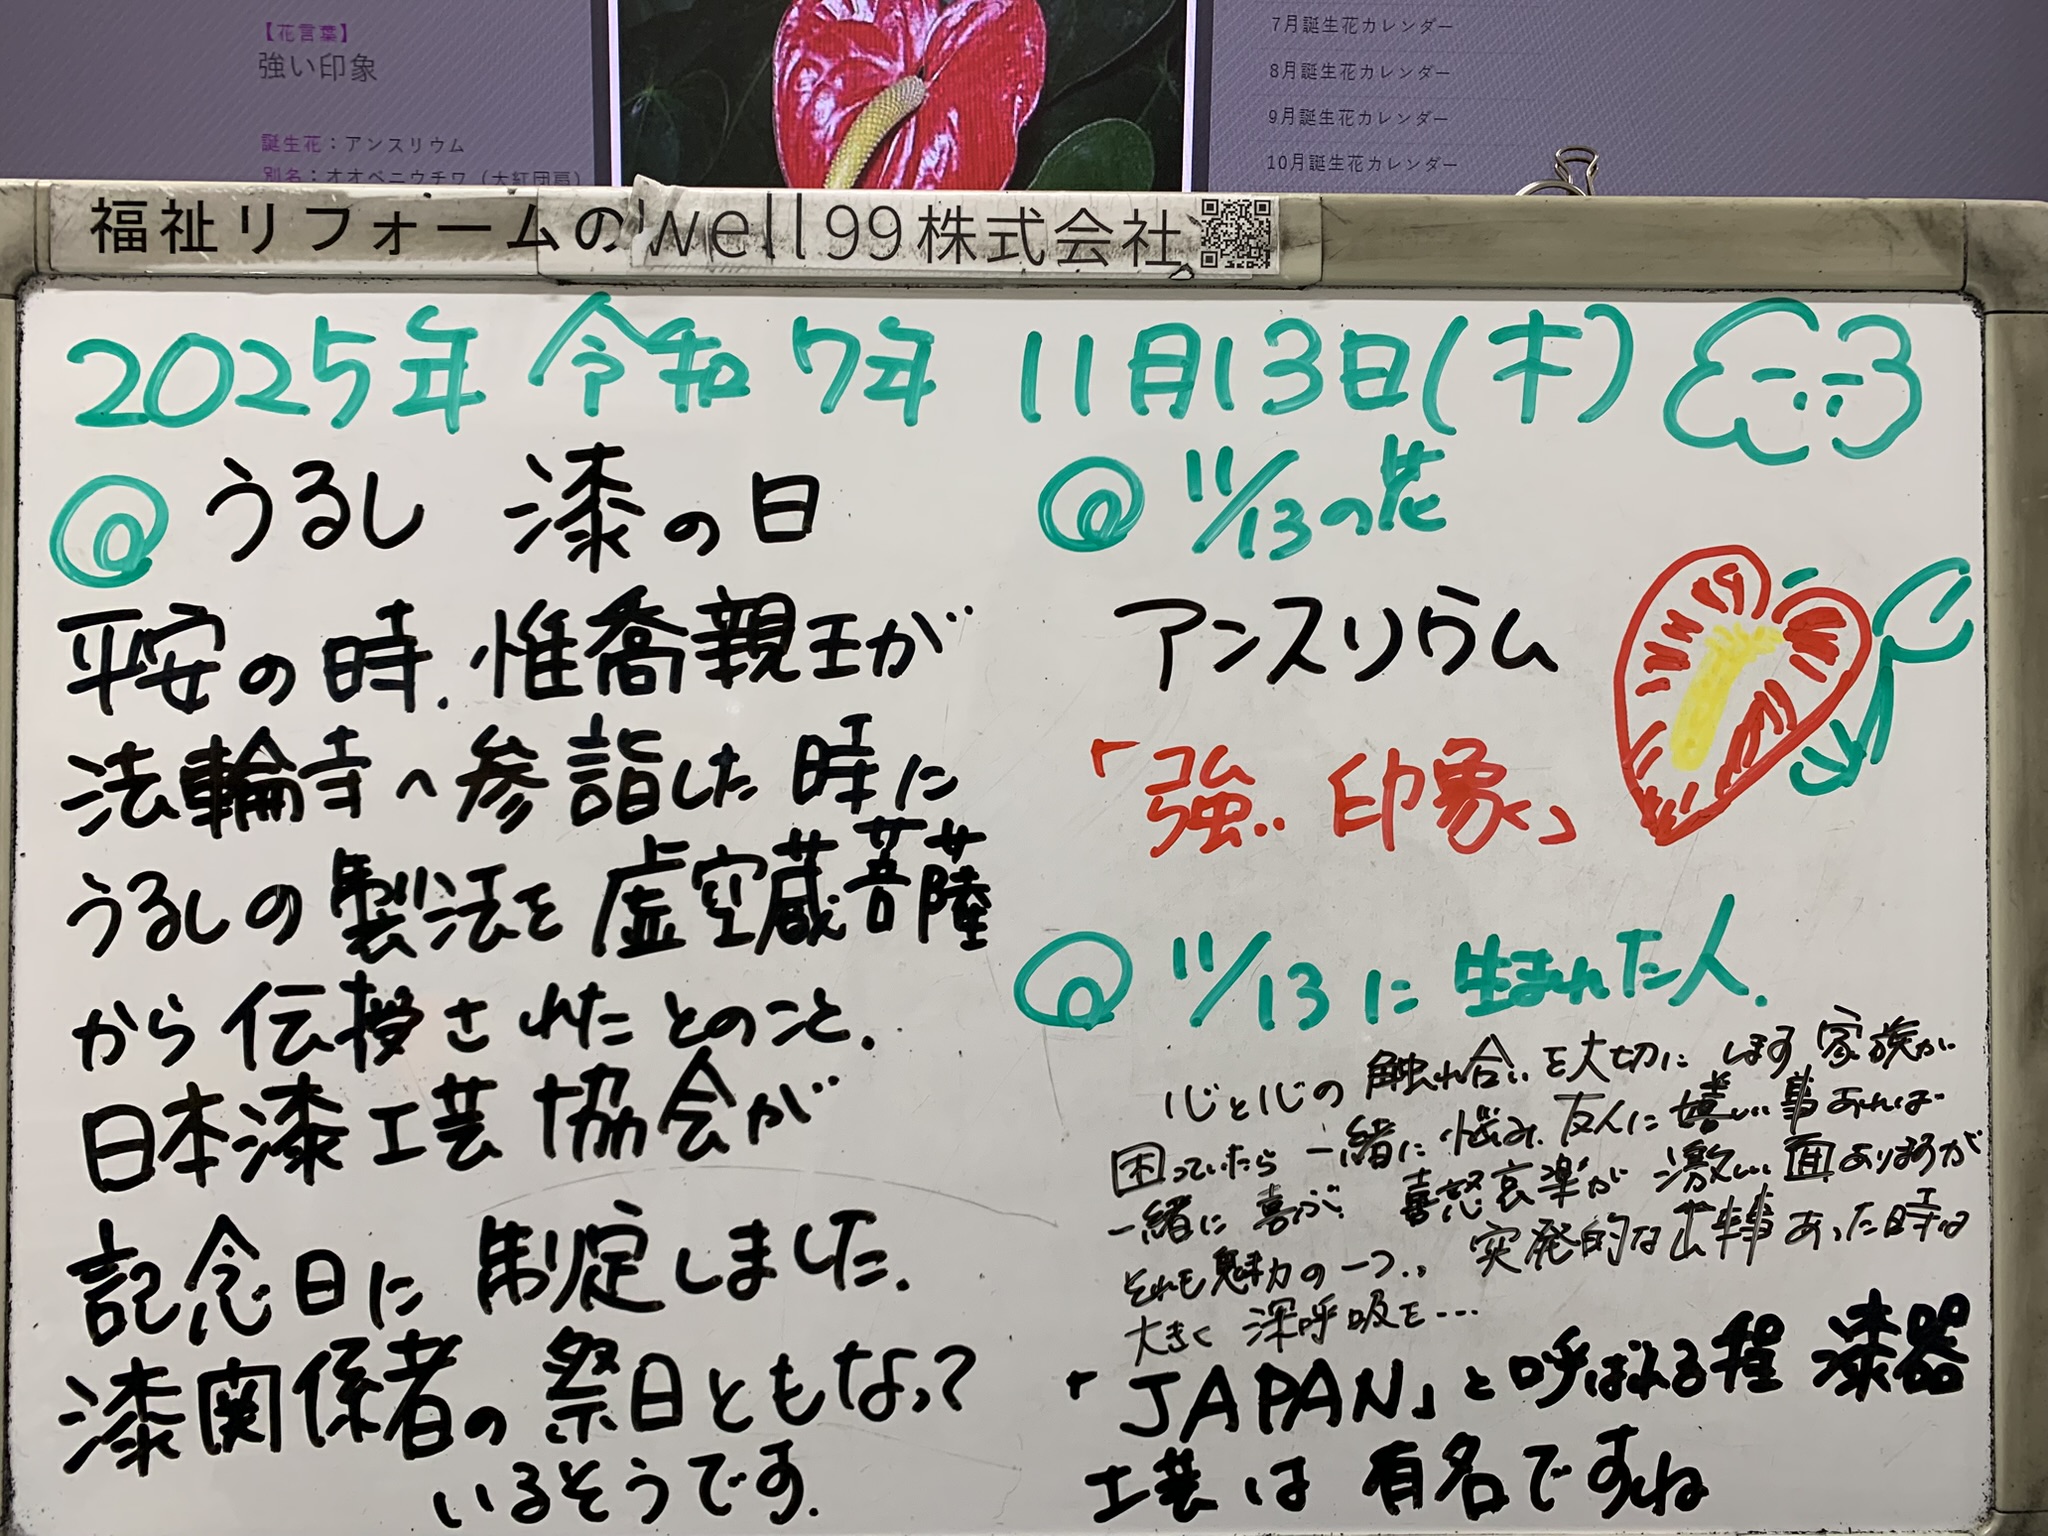 【花言葉】
強い印象
誕生花：アンスリウム
別名：オオベニウチワ（大紅団扇）
7月誕生花カレンダー
8月誕生花カレンダー
9月誕生花カレンダー
10月誕生花カレンダー
福祉リフォームのwell99株式会社
2025年 令和7年 11月13日(木)
うるし 漆の日
平安の時.惟喬親王が
法輪寺へ参詣した時に
うるしの製法を虚空蔵菩薩
から伝授されたとのこと.
日本漆工芸協会が
記念日に制定しました.
漆関係者の祭日ともなって
いるそうです.
11/13の花
アンスリウム
「強い印象」
11/13に生まれた人.
心と心の触れ合いを大切にします家族が
困っていたら一緒に悩み.友人に嬉しい事あれば
一緒に喜ぶ.喜怒哀楽が激しい面ありますが
それも魅力の一つ.. 突発的な出事あった時は
大きく深呼吸を...
「JAPAN」と呼ばれる程 漆器
工芸は有名ですね